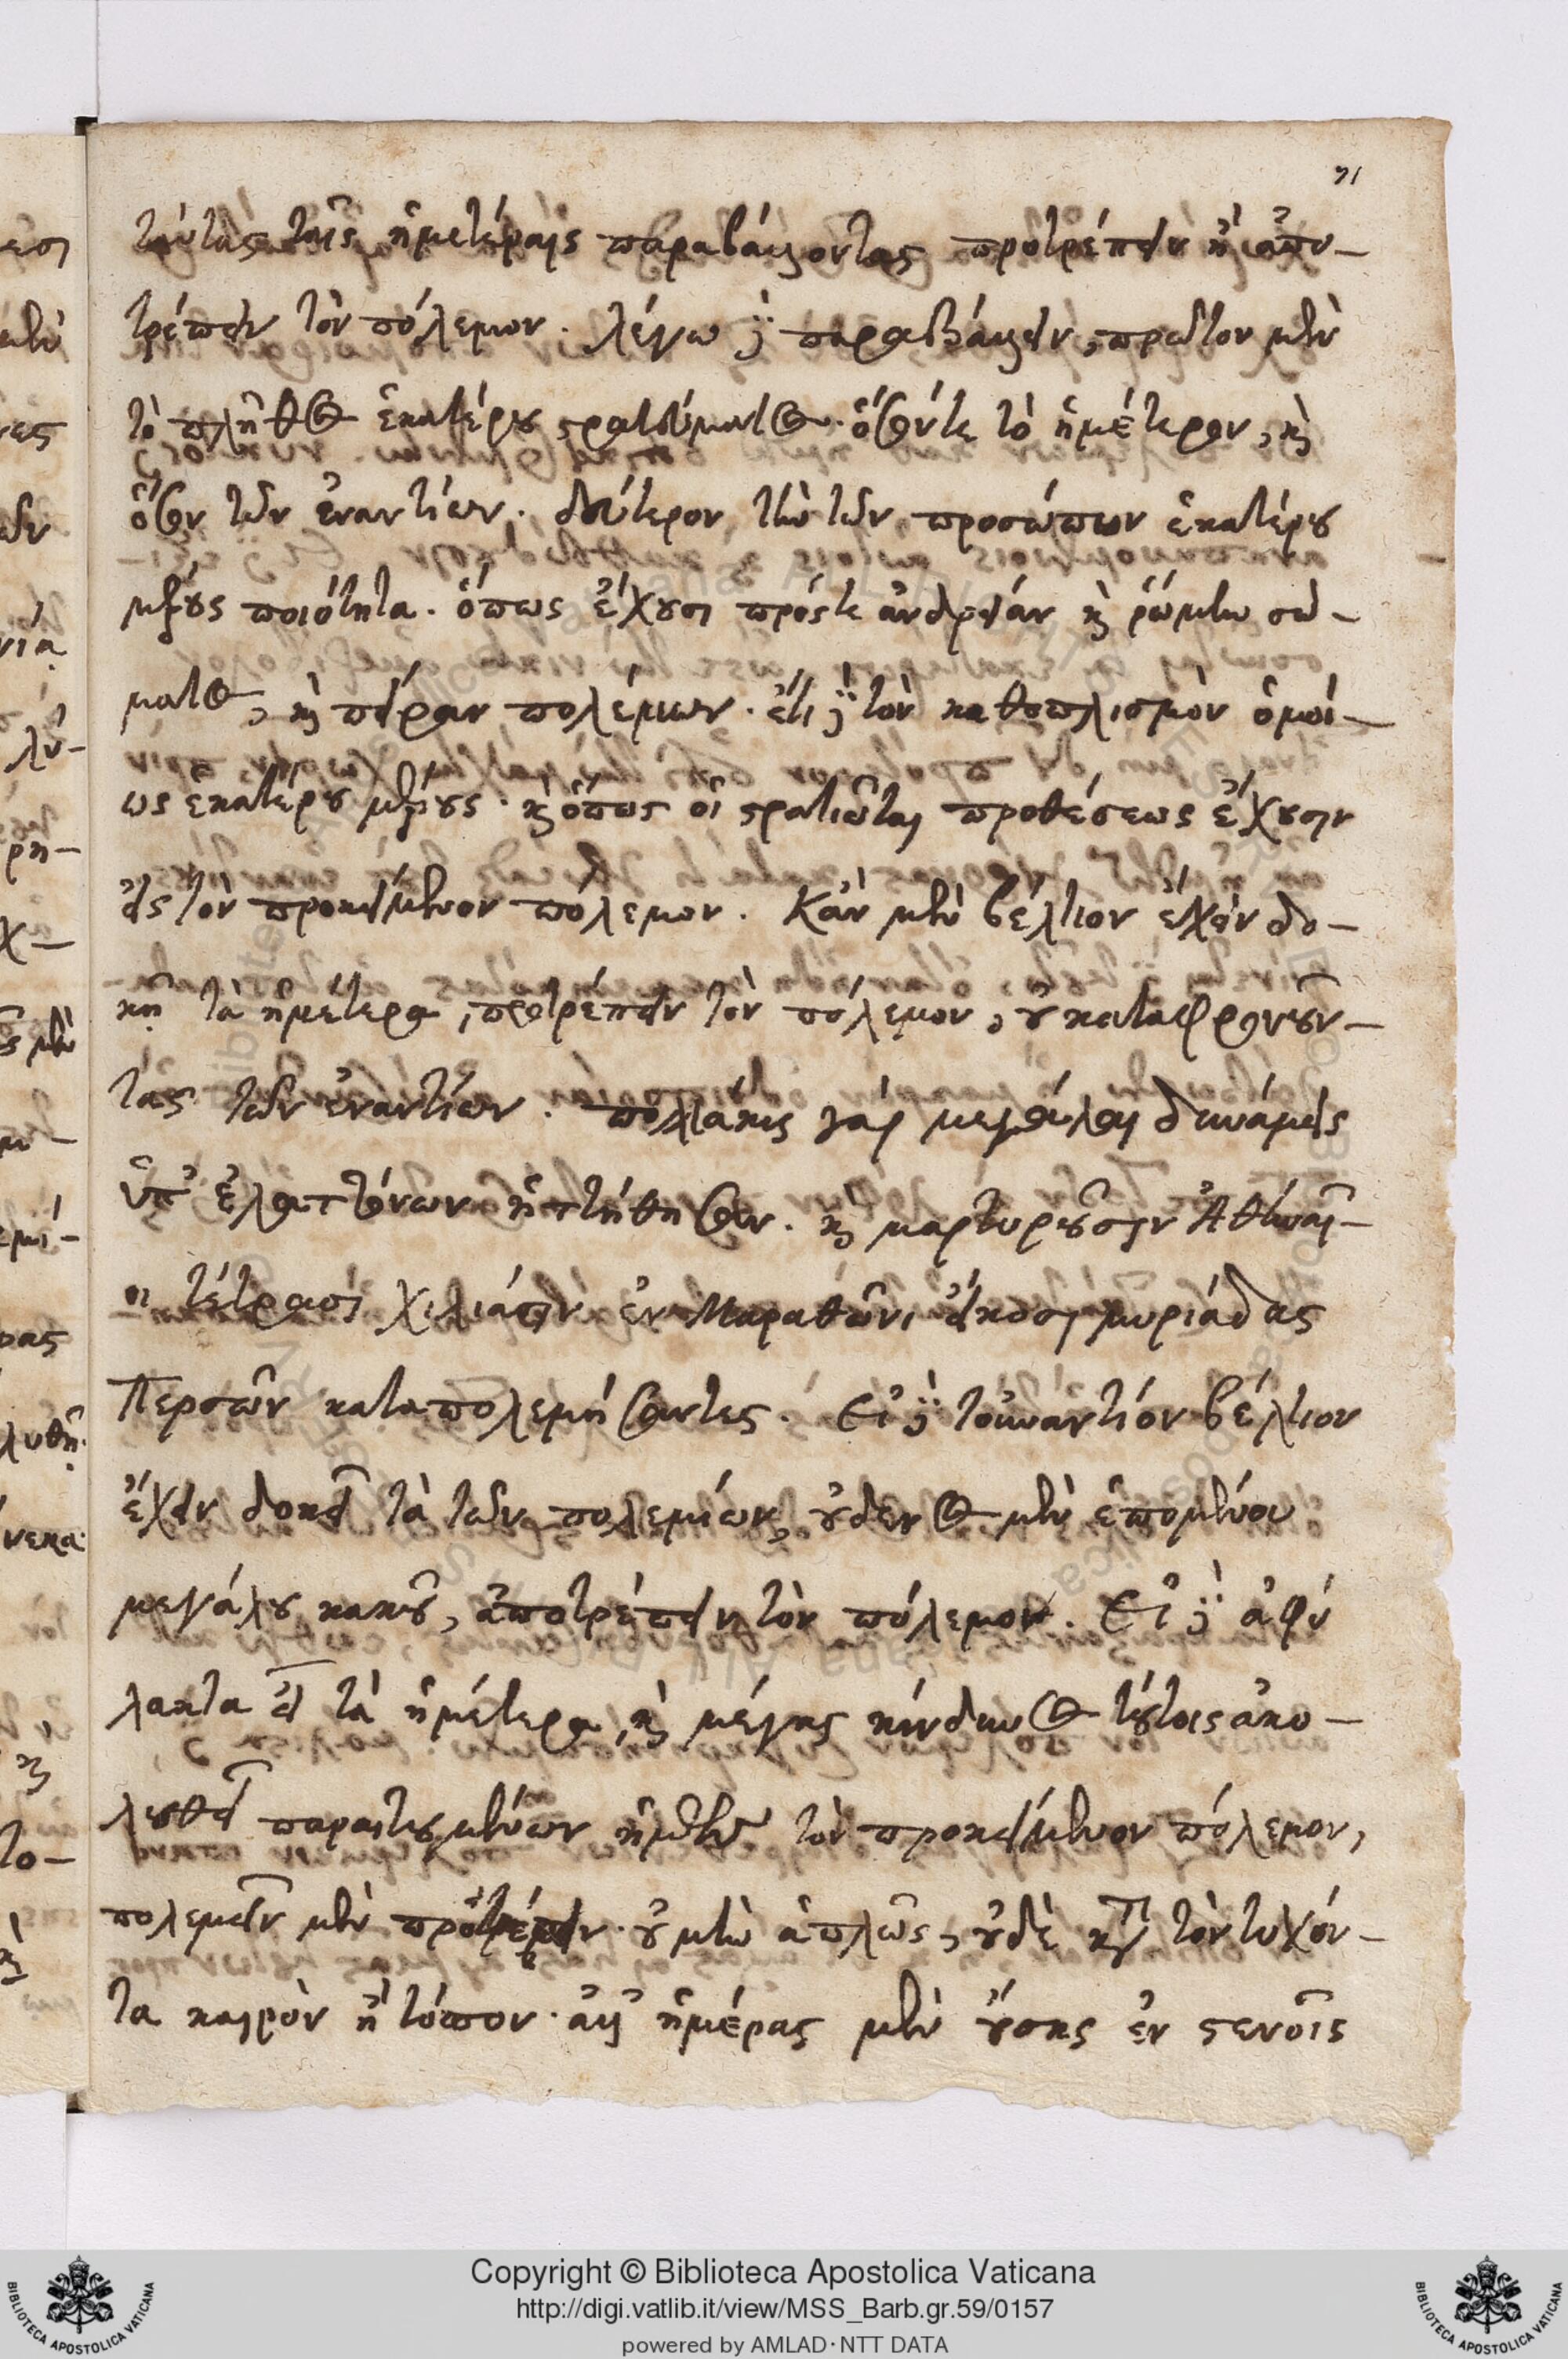 71
ταύτας ταῖς ἡμετέραις παραβάλλοντας προτρέπειν ἢ ἀπο-
τρέπειν τὸν πόλεμον. λέγω δὲ παραβάλλειν, πρῶτον μὲν
τὸ πλῆθος ἑκατέρου στρατεύματος. ὅσόν τε τὸ ἡμέτερον, καὶ
ὅσον τῶν ἐναντίων. δεύτερον τὴν τῶν προσώπων ἑκατέρου
μέρους ποιότητα. ὅπως ἔχουσι πρός τε ἀνδρείαν καὶ ῥώμην σώ-
ματος, καὶ πεῖραν πολέμων. ἔτι δὲ τὸν καθοπλισμὸν ὁμοί-
ως ἑκατέρου μέρους. καὶ ὅπως οἱ στρατιῶται προθέσεως ἔχουσιν
εἰς τὸν προκείμενον πόλεμον. Κἂν μὲν βέλτιον ἔχειν δο-
κῇ τὰ ἡμέτερα, προτρέπειν τὸν πόλεμον, οὐ καταφρονοῦν-
τας τῶν ἐναντίων. πολλάκις γὰρ μεγάλαι δυνάμεις
ὑπ' ἐλαττόνων ἡττήθησαν. καὶ μαρτυροῦσιν Ἀθηναῖ-
οι τέτρασι χιλιάσιν ἐν Μαραθῶνι εἴκοσι μυριάδας
Περσῶν καταπολεμήσαντες. Εἰ δὲ τοὐναντίον βέλτιον
ἔχειν δοκεῖ τὰ τῶν πολεμίων, οὐδενὸς μὲν ἑπομένου
μεγάλου κακοῦ, ἀποτρέπειν τὸν πόλεμον. Εἰ δὲ ἀφύ
λακτα εἴη τὰ ἡμέτερα, καὶ μέγας κίνδυνος τούτοις ἀκο-
λουθεῖ παραιτουμένων ἡμῶν τὸν προκείμενον πόλεμον,
πολεμεῖν μὲν προτρέπειν. οὐ μὴν ἁπλῶς, οὐδὲ κατὰ τὸν τυχόν-
τα καιρὸν ἢ τόπον. ἀλλ' ἡμέρας μὲν οὔσης ἐν στενοῖς
Copyright © Biblioteca Apostolica Vaticana
http://digi.vatlib.it/view/MSS_Barb.gr.59/0157
powered by AMLAD·NTT DATA
BIBLIOTECA APOSTOLICA VATICANA
BIBLIOTECA APOSTOLICA VATICANA